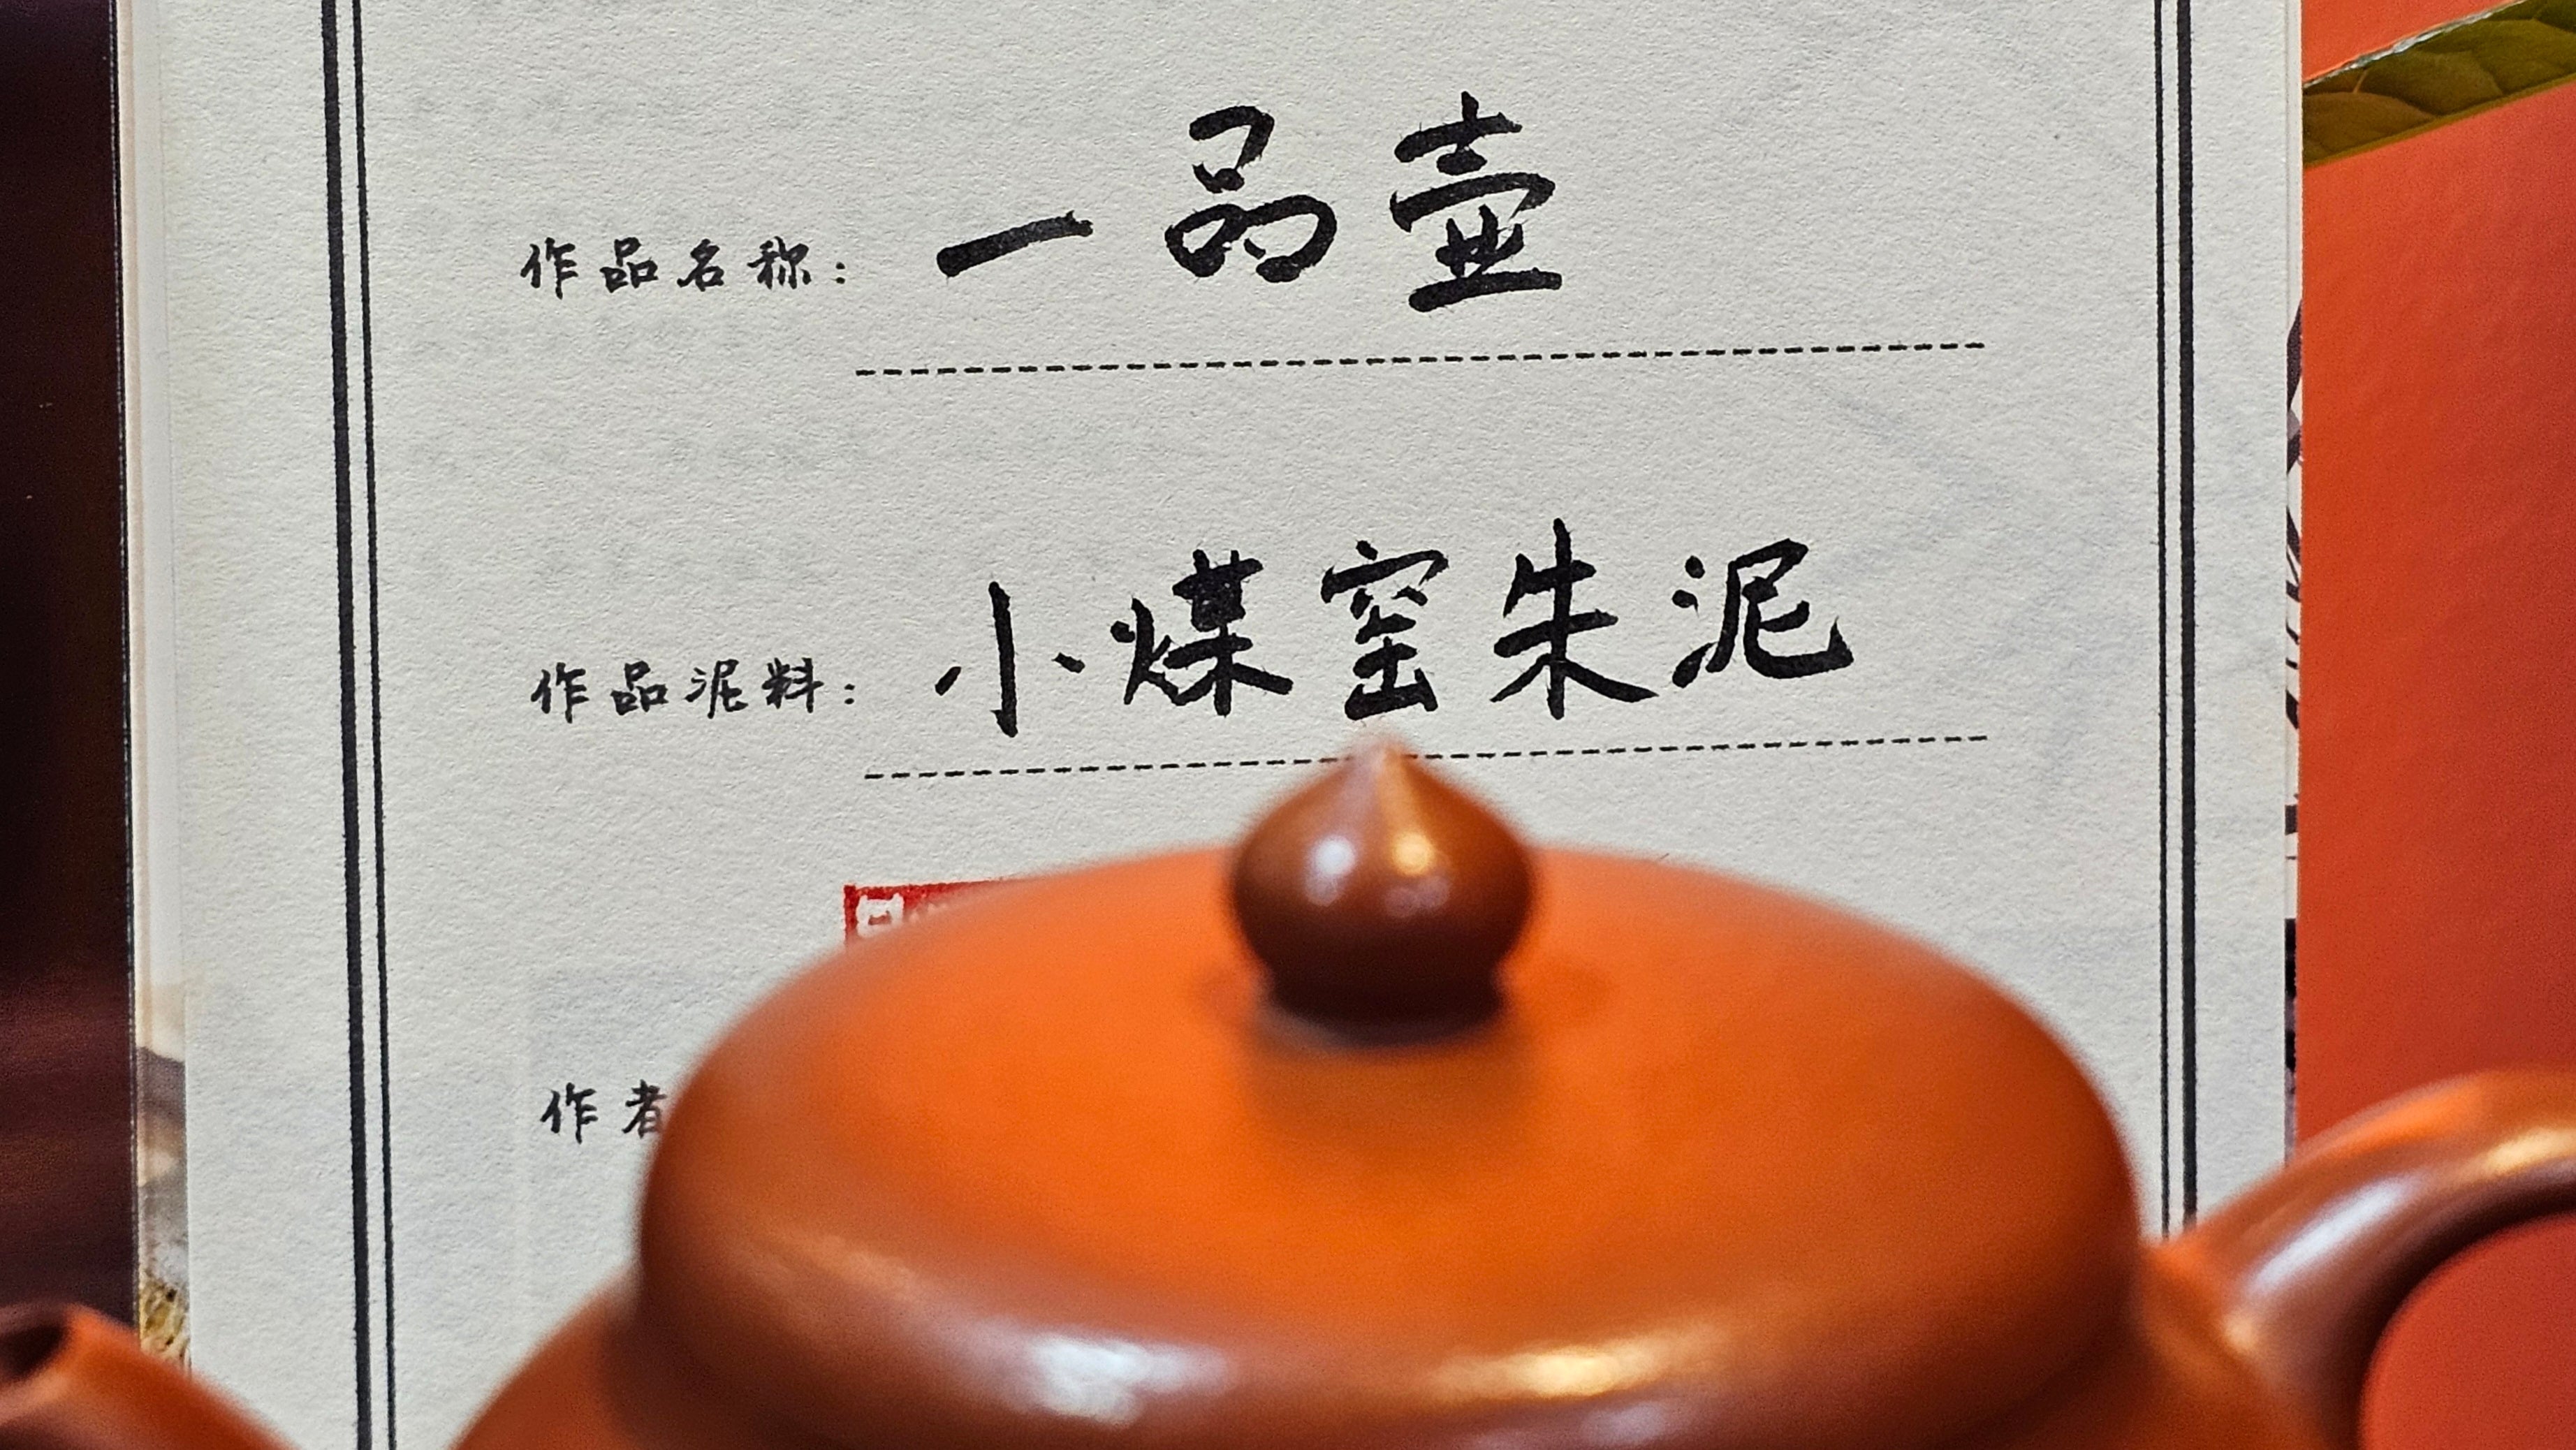 作品名称：一品壶
作品泥料：小煤窑朱泥
作者